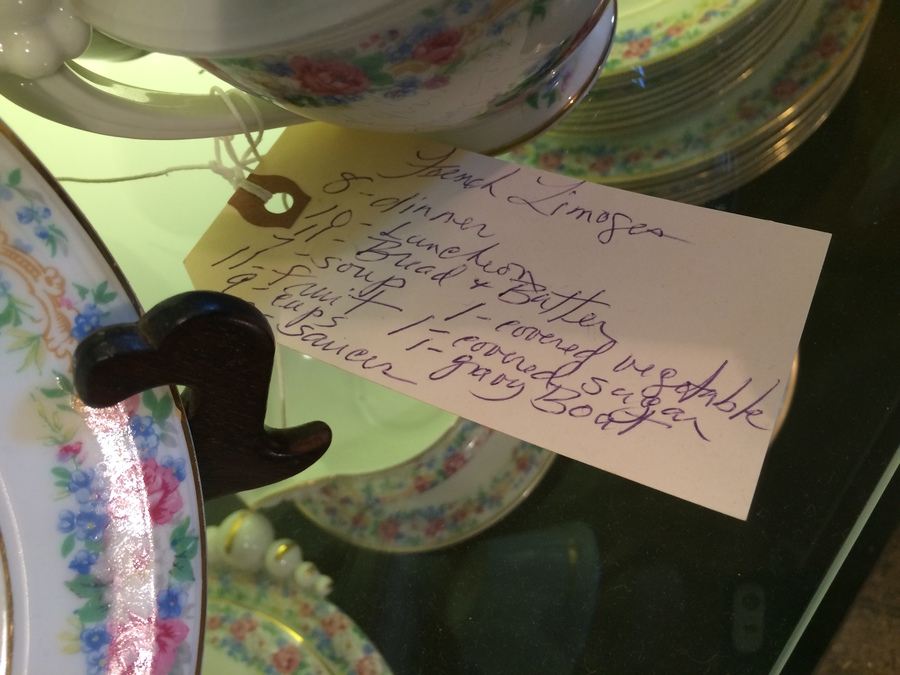 French Limoges
8 - dinner
10 - Luncheon
11 - Bread & Butter
7 - soup
11 - Fruit
9 - cups
saucer
1 - covered vegetable
1 - covered sugar
1 - gavy Boat